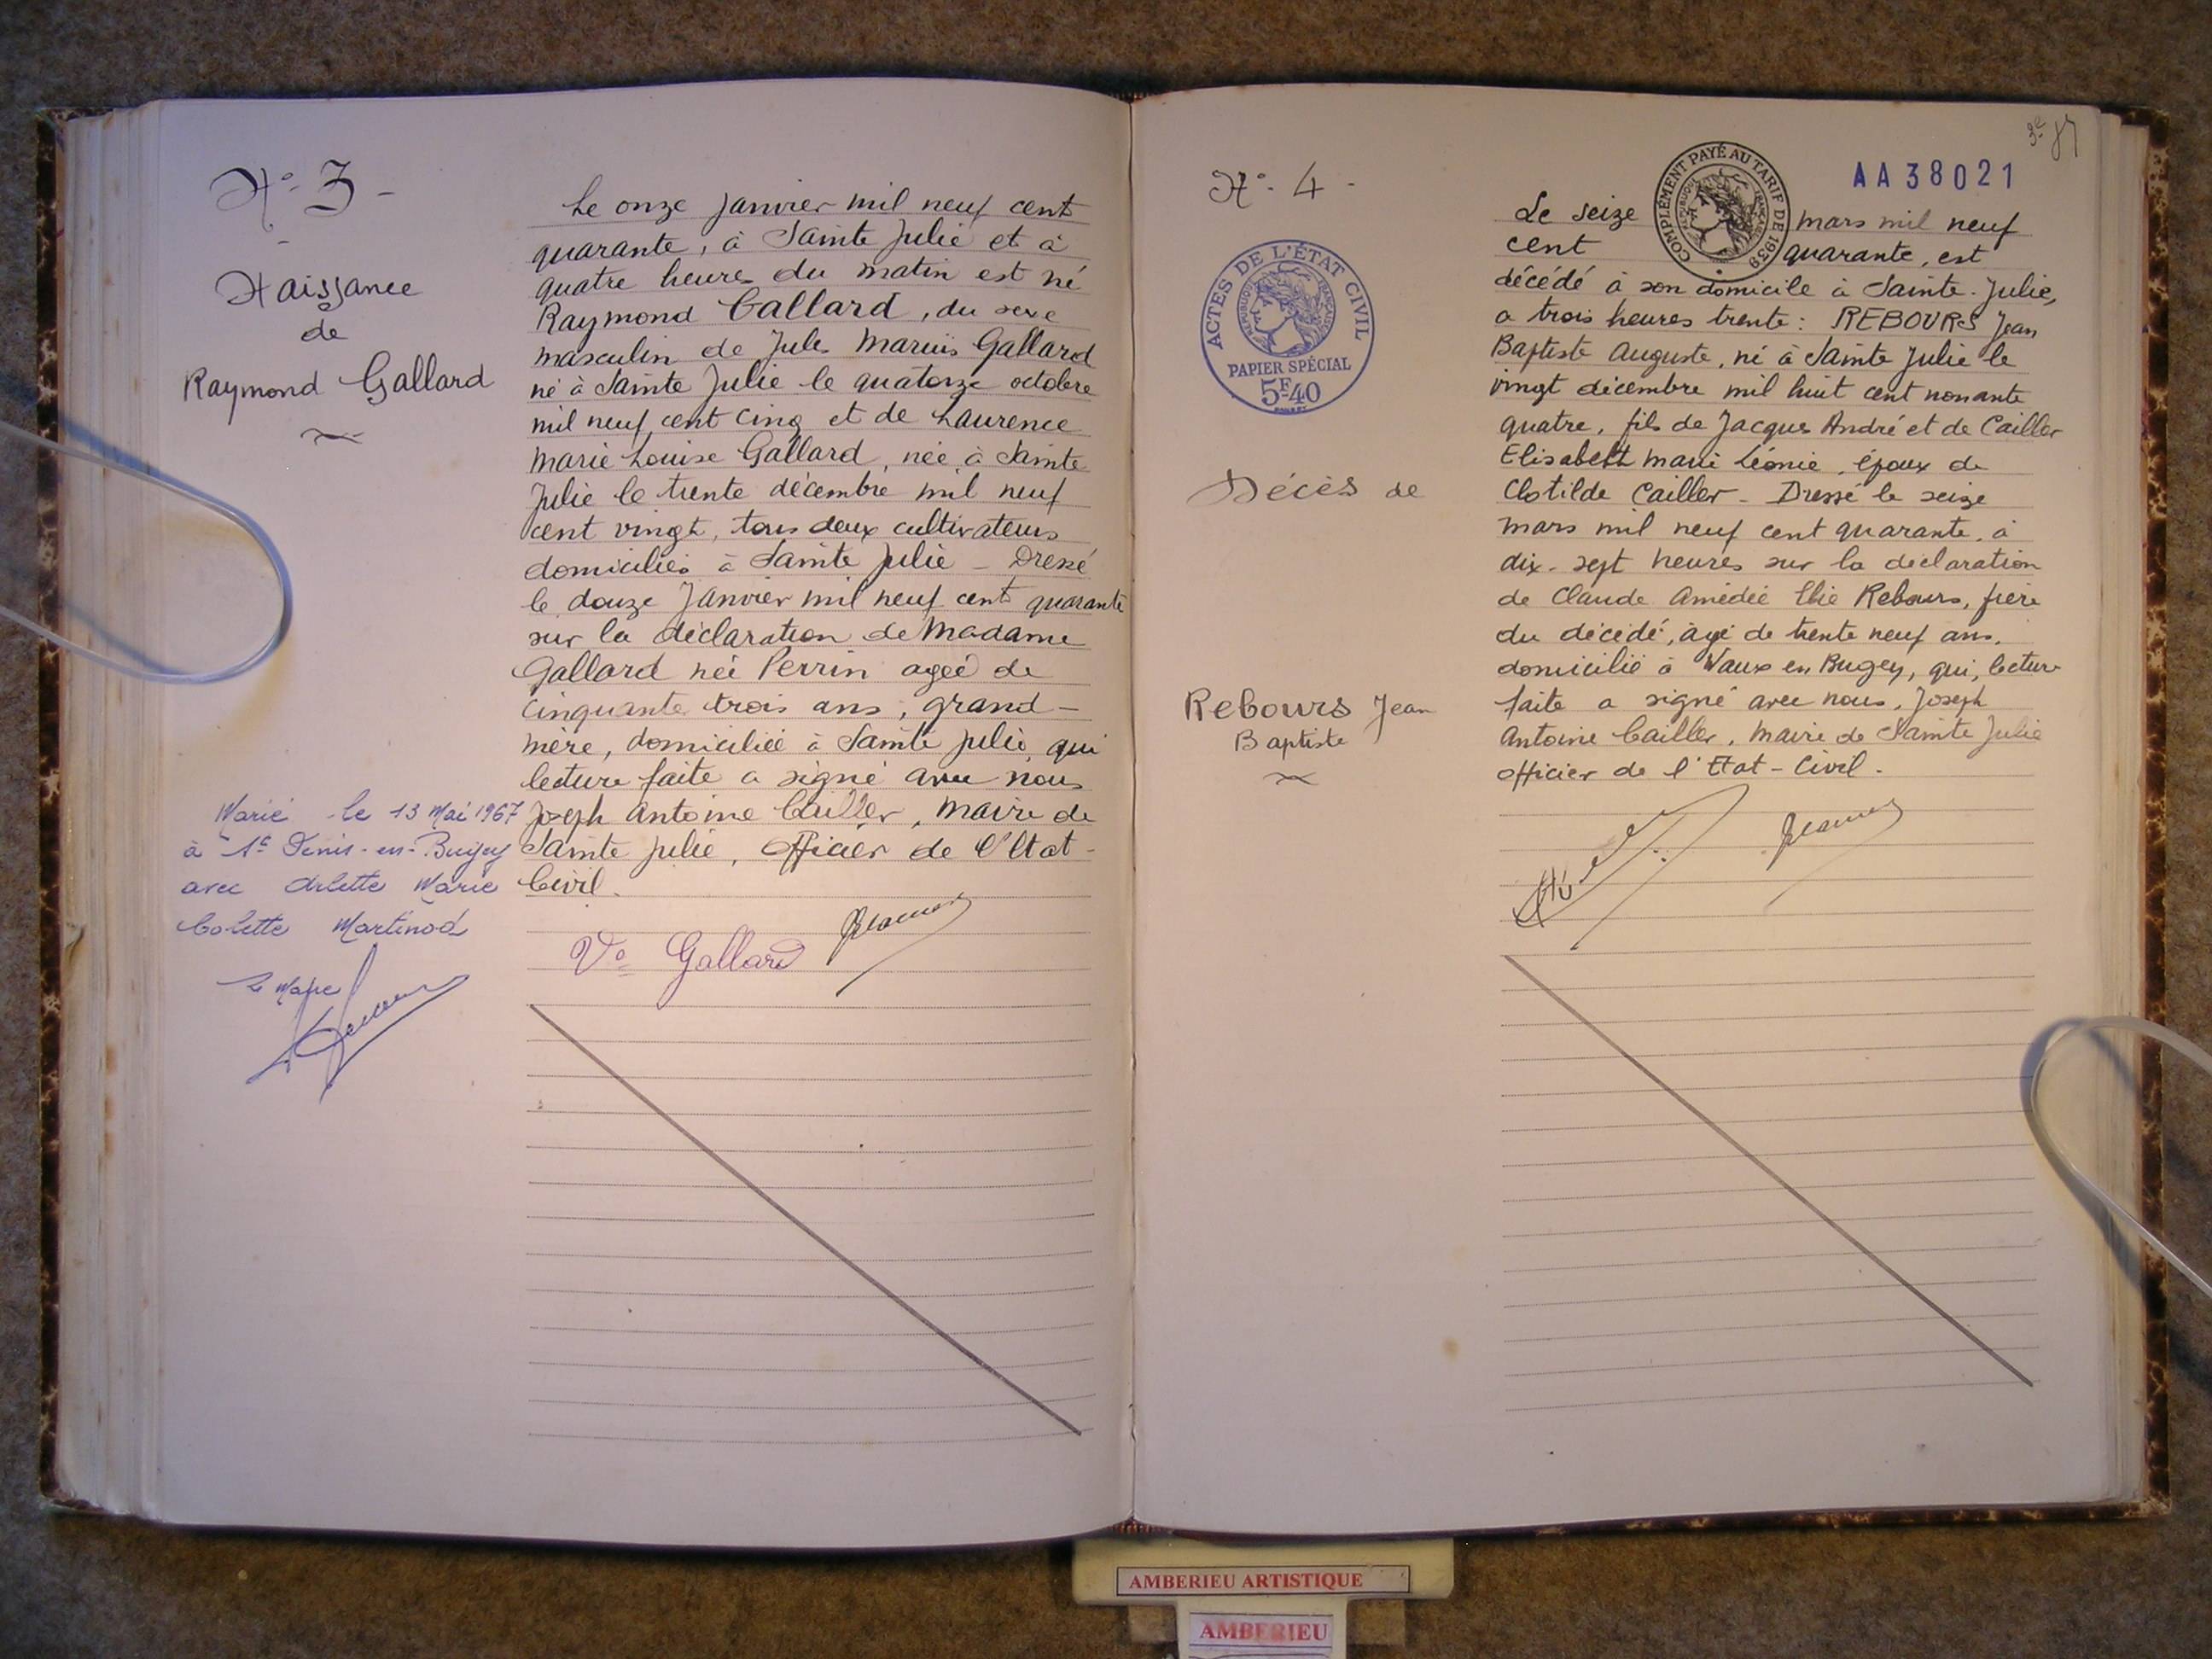 N° 3 -
Naissance
de
Raymond Gallard
Le onze janvier mil neuf cent
quarante, à Sainte Julie et à
quatre heures du matin est né
Raymond Gallard, du sexe
masculin de Jules Marius Gallard
né à Sainte Julie le quatorze octobre
mil neuf cent cinq et de Laurence
Marie Louise Gallard, née à Sainte
Julie le trente décembre mil neuf
cent vingt, tous deux cultivateurs
domiciliés à Sainte Julie - Dressé
le douze Janvier mil neuf cent quarante
sur la déclaration de Madame
Gallard née Perrin agée de
cinquante trois ans, grand-
mère, domiciliée à Sainte Julie, qui
lecture faite a signé avec nous
Joseph Antoine Cailler, Maire de
Sainte Julie, Officier de l'Etat-
Civil.
Marié le 13 Mai 1967
à St Denis-en-Bugey
avec Arlette Marie
Colette Martinod
Le Maire
Ve Gallard
3e
AA38021
N° 4 -
COMPLÉMENT PAYÉ AU TARIF DE 1939
ACTES DE L'ÉTAT CIVIL
RÉPUBLIQUE FRANÇAISE
PAPIER SPÉCIAL
5F40
Décès de
Rebours Jean
Baptiste
Le seize mars mil neuf
cent quarante, est
décédé à son domicile à Sainte-Julie,
a trois heures trente : REBOURS Jean
Baptiste Auguste, né à Sainte Julie le
vingt décembre mil huit cent nonante
quatre, fils de Jacques André et de Cailler
Elisabeth Marie Léonie, époux de
Clotilde Cailler - Dressé le seize
mars mil neuf cent quarante, à
dix-sept heures sur la déclaration
de Claude Amédée Elie Rebours, frère
du décédé, âgé de trente neuf ans,
domicilié à Vaux en Bugey, qui, lecture
faite a signé avec nous, Joseph
Antoine Cailler, Maire de Sainte Julie
officier de l'Etat-Civil.
AMBERIEU ARTISTIQUE
AMBERIEU